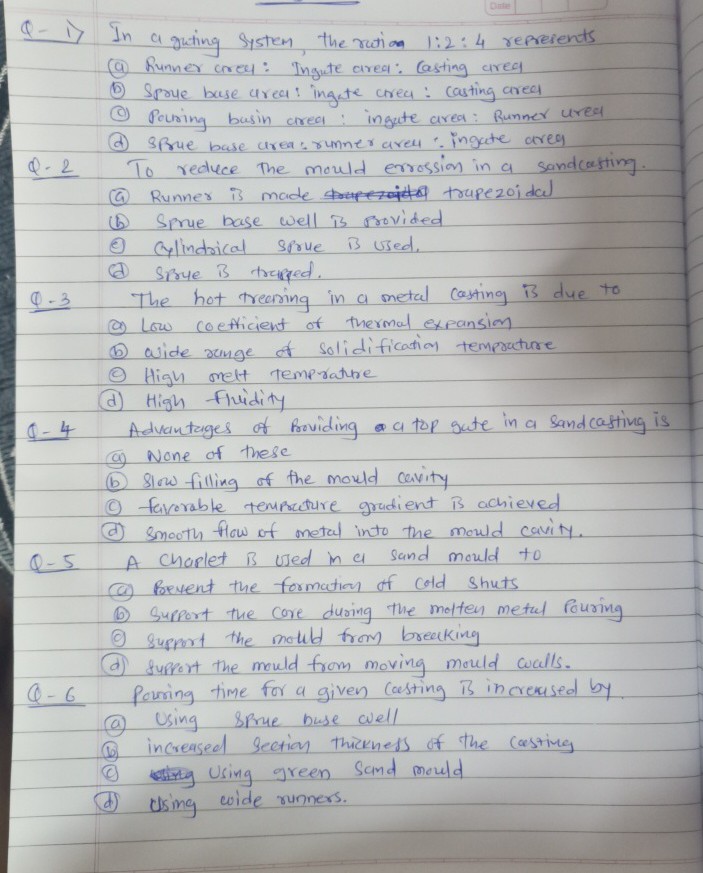 Date
Q - 1) In a gating System, the ration 1:2:4 represents
(a) Runner area: Ingate area: Casting area
(b) Sprue base area: ingate area: Casting area
(c) Pouring basin area: ingate area: Runner area
(d) Sprue base area: runner area: ingate area
Q - 2 To reduce the mould errossion in a sandcasting.
(a) Runner is made trapezoidal trapezoidal
(b) Sprue base well is provided
(c) Cylindrical Sprue is used.
(d) Sprue is trapped.
Q - 3 The hot trearing in a metal casting is due to
(a) Low coefficient of thermal expansion
(b) wide range of solidification temprature
(c) High melt temprature
(d) High fluidity
Q - 4 Advantages of Providing a a top gate in a Sandcasting is
(a) None of these
(b) Slow filling of the mould cavity
(c) favorable temprature gradient is achieved
(d) Smooth flow of metal into the mould cavity.
Q - 5 A Chaplet is used in a sand mould to
(a) Prevent the formation of Cold Shuts
(b) Support the core during the molten metal Pouring
(c) Support the mould from breaking
(d) Support the mould from moving mould walls.
Q - 6 Pouring time for a given Casting is increased by
(a) Using Sprue base well
(b) increased Section thickness of the Casting
(c) Using green Sand mould
(d) Using wide runners.